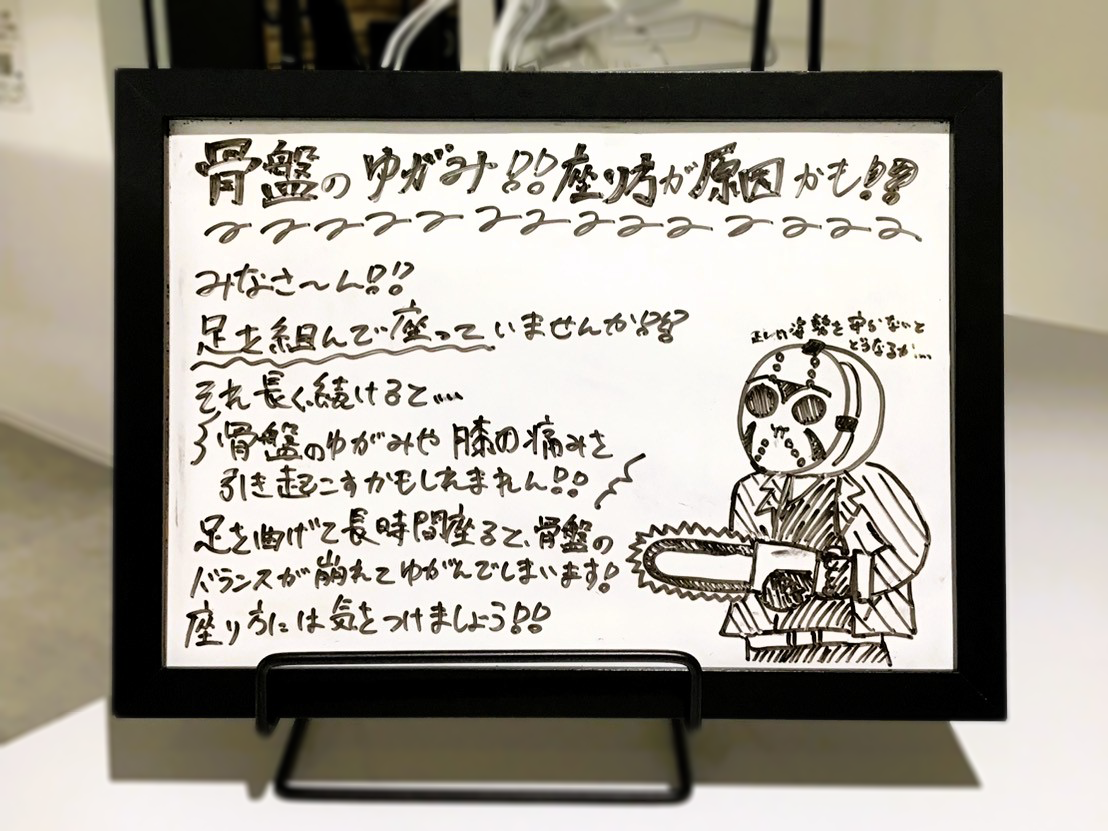 骨盤のゆがみ!!座り方が原因かも!!?
みなさ〜ん!!
足を組んで座っていませんか!?!?
それ長く続けると...
骨盤のゆがみや膝の痛みを
引き起こすかもしれません!!
足を曲げて長時間座ると、骨盤の
バランスが崩れてゆがんでしまいます!
座り方には気をつけましょう!!
正しい姿勢を守らないと
どうなるか...